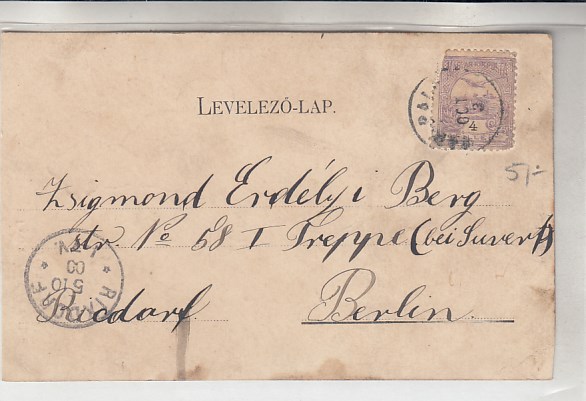 LEVELEZŐ-LAP.
4
5/-
Zsigmond Erdélyi Berg
str. No 58 I Treppe (bei Suvert)
Ricdorf Berlin
5 10
00